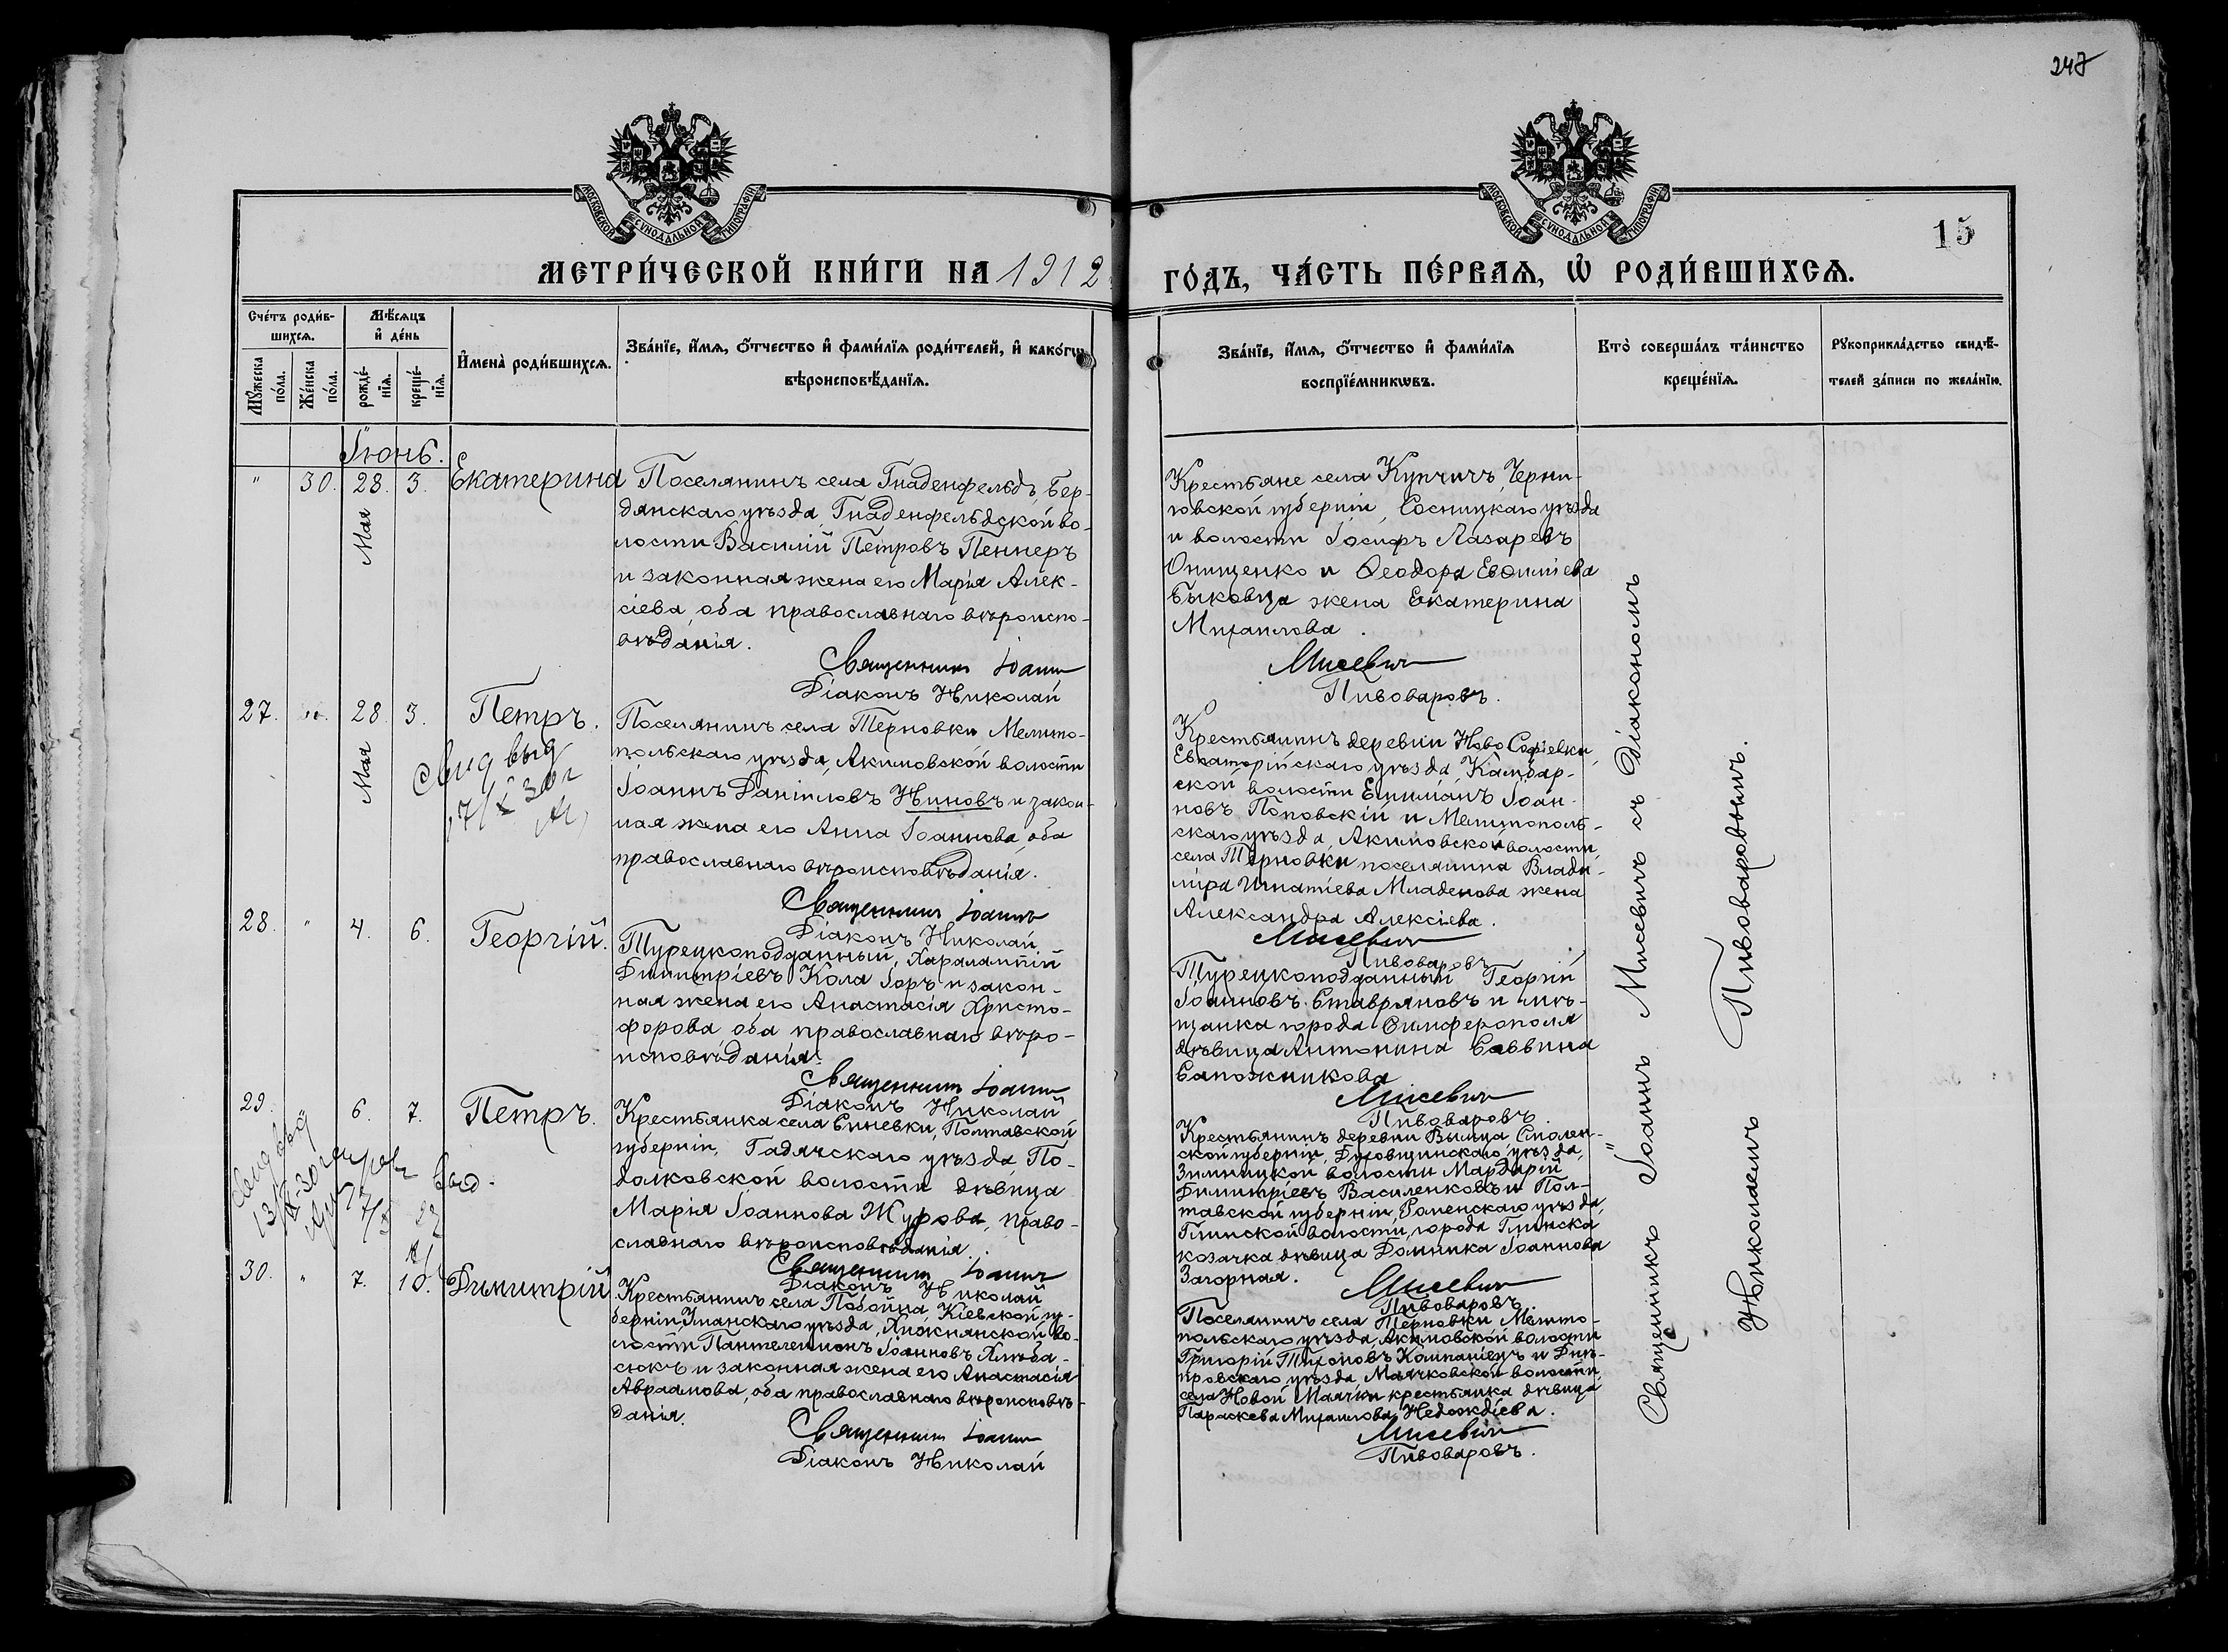 247
МОСКОВСКОЙ СѴНОДАЛЬНОЙ ТИПОГРАФІИ
МОСКОВСКОЙ СѴНОДАЛЬНОЙ ТИПОГРАФІИ
15
МЕТРИ́ЧЕСКОЙ КНИ́ГИ НА 1912
ГО́ДЪ, ЧА́СТЬ ПЕ́РВАѦ, Ѡ РОДИ́ВШИХСѦ.
Сче́тъ роди́в-
шихсѧ.
Му́жеска по́ла.
Же́нска по́ла.
Мѣ́сѧцъ
и де́нь
рожде́-
нїѧ.
креще́-
нїѧ.
И҆мена̀ роди́вшихсѧ.
Зва́нїе, и҆́мѧ, ѻ҆́тчество и҆ фами́лїѧ роди́телей, и҆ како́гѡ
вѣроисповѣ́данїѧ.
Зва́нїе, и҆́мѧ, ѻ҆́тчество и҆ фами́лїѧ
воспрїе́мникѡвъ.
Кто̀ соверша́лъ та́инство
креще́нїѧ.
Рꙋкоприкла́дство свидѣ́-
телей за́писи по жела́нїю.
Іюнь.
" 30. 28. 3. Екатерина
Мая
Поселянинъ села Гнаденфельдъ, Бер-
дянскаго уѣзда, Гнаденфельдской во-
лости Василій Петровъ Пеннеръ
и законная жена его Марія Алек-
сіева, оба православнаго вѣроиспо-
вѣданія.
Священникъ Іоаннъ
Діаконъ Николай
Крестьяне села Купчичъ, Черни-
говской губерніи, Сосницкаго уѣзда
и волости Іосифъ Лазаревъ
Онищенко и Ѳеодора Евѳиміева
Быковца жена Екатерина
Михаилова.
Мисевичъ
Пивоваровъ.
27. " 28. 3. Петръ.
Мая
Свид выд
17/X 30 г
Поселянинъ села Терновки Мелито-
польскаго уѣзда, Акимовской волости
Іоаннъ Даніиловъ Ниновъ и закон-
ная жена его Анна Іоаннова, оба
православнаго вѣроисповѣданія.
Священникъ Іоаннъ
Діаконъ Николай
Крестьянинъ деревни Ново Софіевки,
Евпаторійскаго уѣзда, Камбар-
ской волости Емиліанъ Іоан-
новъ Поповскій и Мелитополь-
скаго уѣзда, Акимовской волости,
села Терновки поселянина Влади-
міра Игнатіева Младенова жена
Александра Алексіева.
Мисевичъ
Пивоваровъ
28. " 4. 6. Георгій.
Турецкоподданный, Харалампій
Димитріевъ Кола Іоръ и закон-
ная жена его Анастасія Христо-
форова оба православнаго вѣро-
исповѣданія.
Священникъ Іоаннъ
Діаконъ Николай
Турецкоподданный Георгій
Іоанновъ Ставряновъ и мѣ-
щанка города Симферополя
дѣвица Антонина Саввина
Сапожникова
Мисевичъ
Пивоваровъ.
29. 6. 7. Петръ.
Свид выд
13/IX-30
выд.
Крестьянка села Синевки, Полтавской
губерніи, Гадячскаго уѣзда, По-
долковской волости дѣвица
Марія Іоаннова Журова, право-
славнаго вѣроисповѣданія.
Священникъ Іоаннъ
Діаконъ Николай
Крестьянинъ деревни Вымца, Смолен-
ской губерніи, Духовщинскаго уѣзда,
Зимницкой волости Мардарій
Димитріевъ Василенковъ и Пол-
тавской губерніи, Роменскаго уѣзда,
Глинской волости, города Глинска
козачка дѣвица Домника Іоаннова
Загорная.
Мисевичъ
Пивоваровъ.
30. " 7. 10. Димитрій
Крестьянинъ села Побойна, Кіевской гу-
берніи, Уманскаго уѣзда, Хижнянской во-
лости Пантелеимонъ Іоанновъ Хлѣба-
сюкъ и законная жена его Анастасія
Авраамова, оба православнаго вѣроисповѣ-
данія.
Священникъ Іоаннъ
Діаконъ Николай
Поселянинъ села Терновки Мелито-
польскаго уѣзда Акимовской волости
Григорій Тихоновъ Компаніецъ и Днѣ-
провскаго уѣзда Маячковской волости,
села Новой Маячки крестьянка дѣвица
Параскева Михаилова Недождіева.
Мисевичъ
Пивоваровъ.
Священникъ Іоаннъ Мисевичъ съ Діакономъ
Николаемъ Пивоваровымъ.